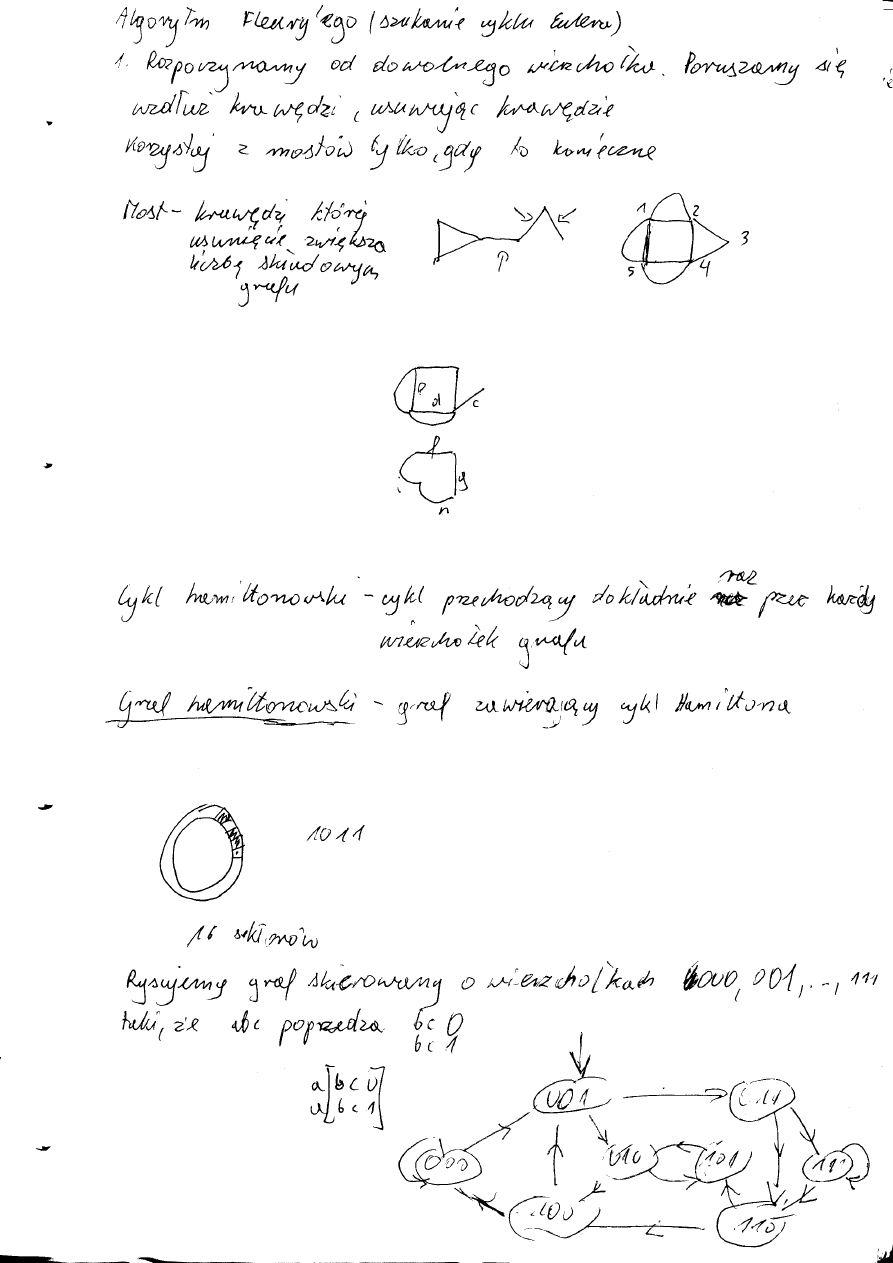 Algorytm Fleury'ego (szukanie cyklu Eulera)
1. Rozpoczynamy od dowolnego wierzchołka. Poruszamy się
wzdłuż krawędzi, usuwając krawędzie
Korzystaj z mostów tylko, gdy to konieczne
Most - krawędź której
usunięcie zwiększa
liczbę składowych
grafu
1 2
3
5 4
e
d c
f
i g
h
raz
Cykl hamiltonowski - cykl przechodzący dokładnie przez każdy
wierzchołek grafu
Graf hamiltonowski - graf zawierający cykl Hamiltona
1011
16 sektorów
Rysujemy graf skierowany o wierzchołkach 000, 001, .., 111
taki, że abc poprzedza bc0
bc1
a[bc0]
a[bc1]
001 011
000 010 101 111
100 110